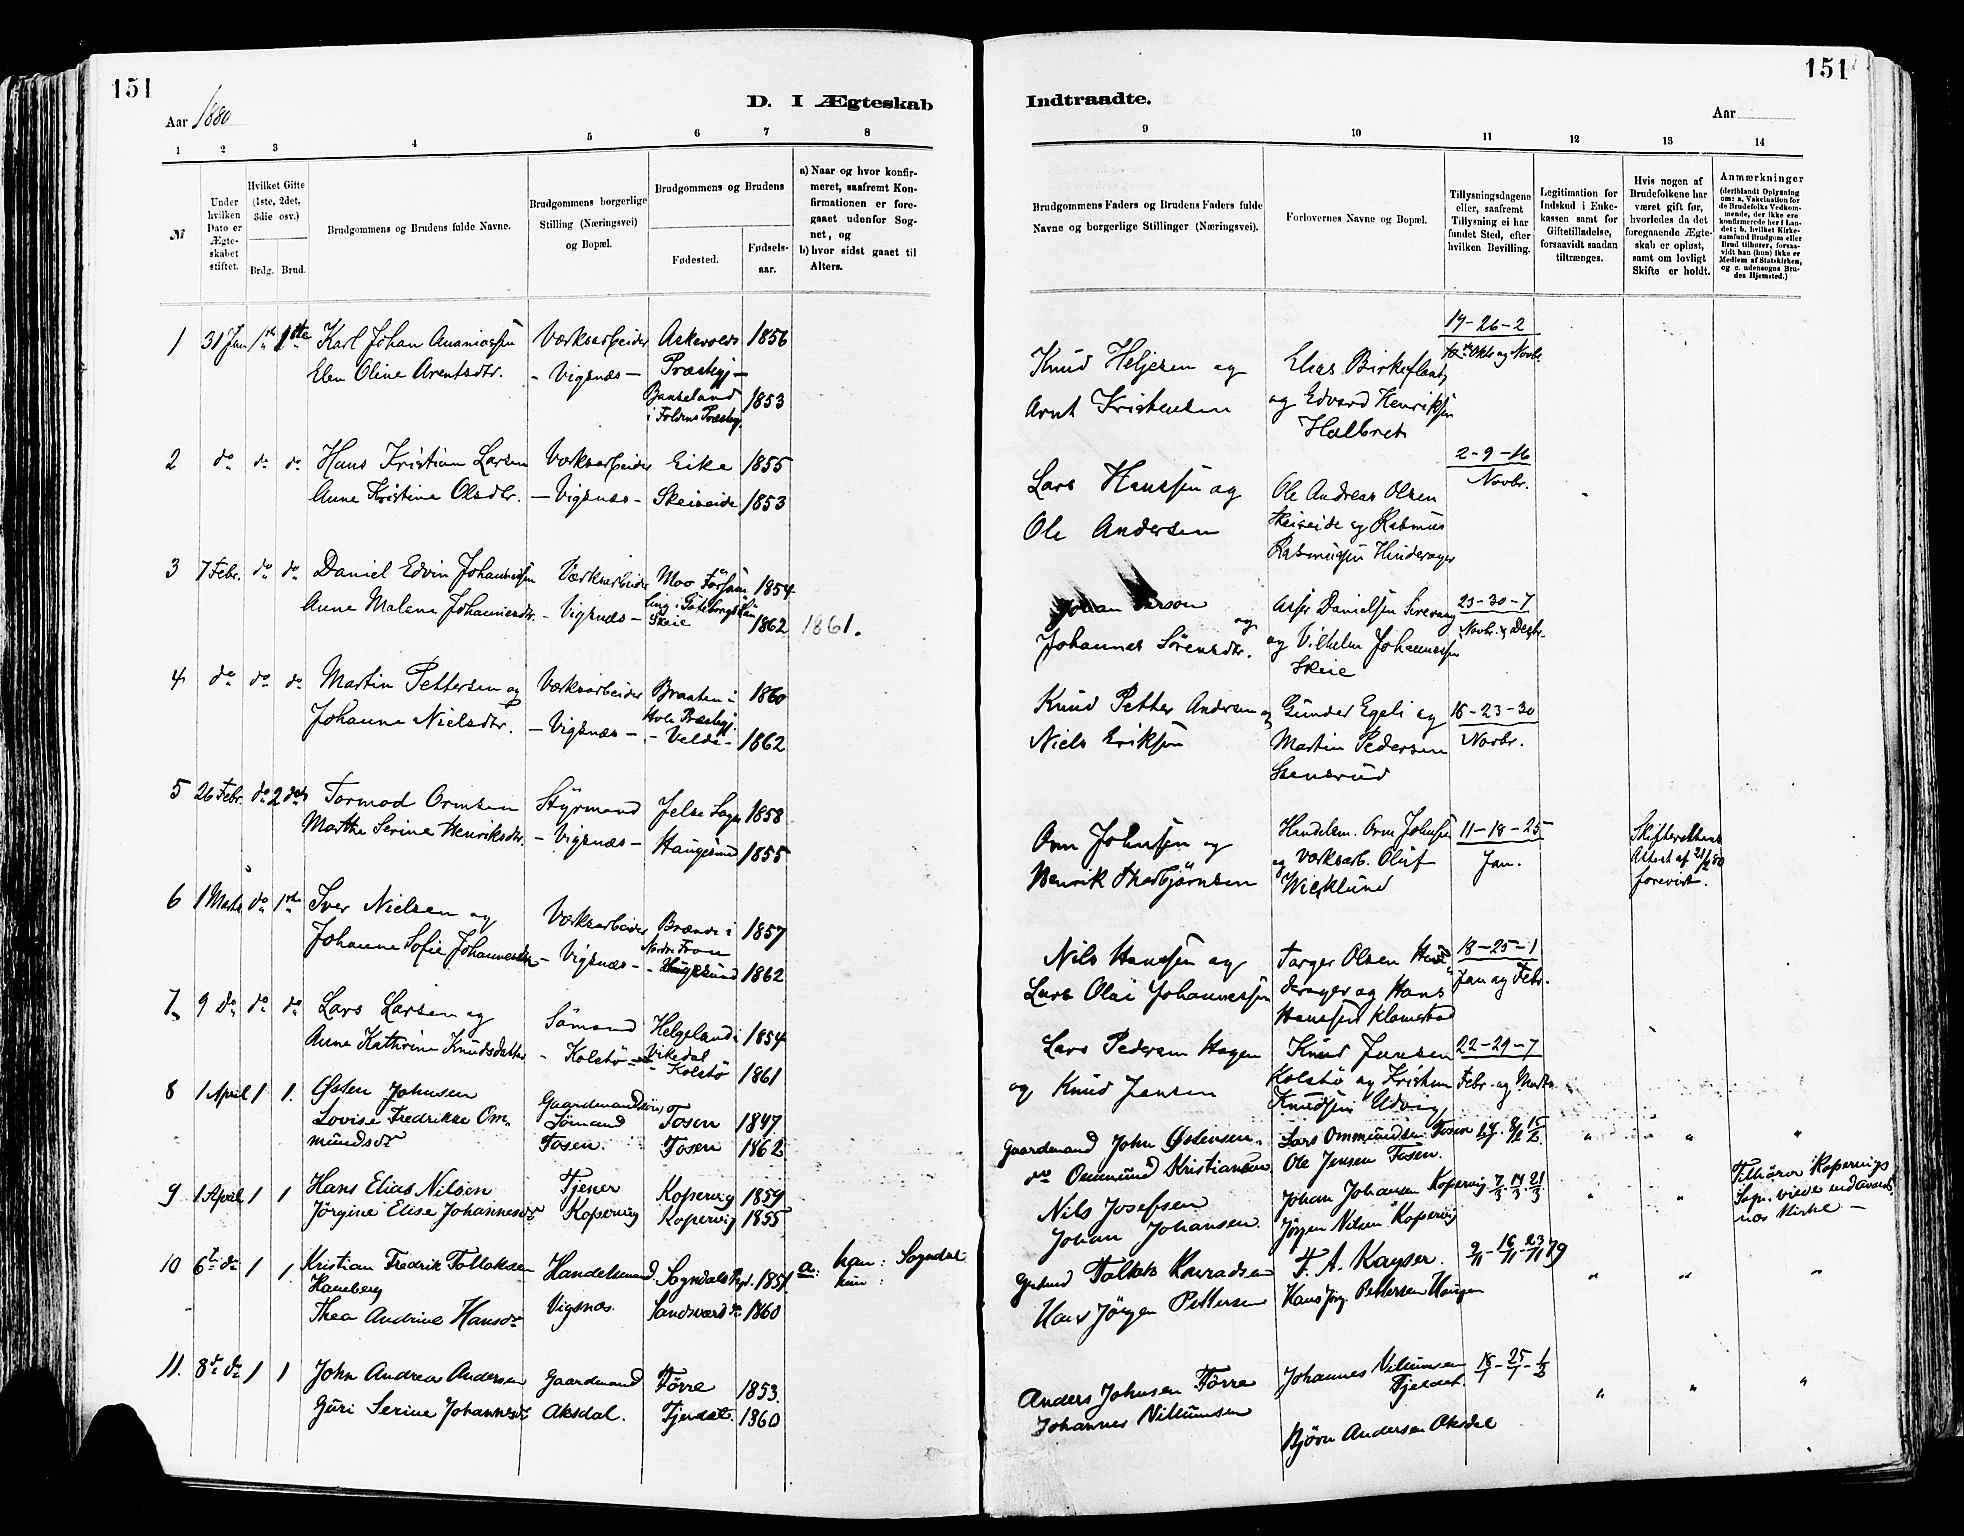 151
Aar 1880
D. I Ægteskab
1 2 3 4 5 6 7 8
№
Under hvilken Dato er Ægteskabet stiftet.
Hvilket Gifte (1ste, 2det, 3die osv.)
Brdg. Brud.
Brudgommens og Brudens fulde Navne.
Brudgommens borgerlige Stilling (Næringsvei) og Bopæl.
Brudgommens og Brudens
Fødested.
Fødselsaar.
a) Naar og hvor konfirmeret, saafremt Konfirmationen er foregaaet udenfor Sognet, og
b) hvor sidst gaaet til Alters.
1 31 Jan 1ste 1ste Karl Johan Ananiassen Værksarbeider Askevolds 1856
Elen Oline Arentsdtr. - Vigsnæs - Præstegj -
1853
i Foldens Præstegj.
2 do do do Hans Kristian Larsen Værksarbeider Eike 1855
Anne Kristine Olsdtr. - Vigsnæs - Skeiseide 1853
3 7 Febr. do do Daniel Edvin Johannessen Værksarbeider Moo 1854
Anne Malene Johannesdtr. - Vigsnæs - Skeie 1862 1861.
4 do do do Martin Pettersen og Værksarbeider Braaten i 1860
Hole Præstegj
Johanne Nielsdtr. - Vigsnæs - - Velde - 1862
5 26 Febr. do 2det Tormod Ormsen Styrmand Jelse Sogn 1858
Marthe Serine Henriksdtr. - Vigsnæs - Haugesund 1855
6 1 Marts do 1ste Iver Nielsen og Værksarbeider Brænde i 1857
Nordre Fron
Johanne Sofie Johannesdtr - Vigsnæs - - Haugesund 1862
7 9 do do do Lars Larsen og Sømand Helgeland i 1854
Vikedal
Anne Kathrine Knudsdatter - Kolstø - - Kolstø 1861
8 1 April 1 1. Østen Johnsen Gaardmandssøn
Lovise Fredrikke Om- Sømand Fosen 1847
mundsdtr Fosen. Fosen 1862
9 1 April 1 1 Hans Elias Nilsen Tjener Kopervig 1859
Jørgine Elise Johannesdtr Kopervig Kopervig 1855
10 6te do 1 1. Kristian Fredrik Tollaksen Handelsmand. Sogndals Pgd. 1851 a: ham: Sogndal
Hamberg hun :
Thea Andrine Hansdtr Vigsnæs. Sandsværd do 1860
11. 8de do 1 1 John Andreas Andersen Gaardmand Førre 1853.
Guri Serine Johannesdtr Aksdal. Fjeldet. 1860
151
Indtraadte.
Aar
9 10 11 12 13 14
Brudgommens Faders og Brudens Faders fulde Navne og borgerlige Stillinger (Næringsvei).
Forlovernes Navne og Bopæl.
Tillysningsdagene eller, saafremt Tillysning ei har fundet Sted, efter hvilken Bevilling.
Legitimation for Indskud i Enkekassen samt for Giftetilladelse, forsaavidt saadan tiltrænges.
Hvis nogen af Brudefolkene har været gift før, hvorledes da det foregaaende Ægteskab er opløst, samt om lovligt Skifte er holdt.
Anmærkninger
(deriblandt Oplysning om: a. Vakcination for de Brudefolks Vedkommende, der ikke ere konfirmerede her i Landet; b. hvilket Kirkesamfund Brudgom eller Brud tilhører, forsaavidt han (hun) ikke er Medlem af Statskirken, og c. udensogns Brudes Hjemsted.)
19 - 26 - 2
Okt og Novbr.
Knud Heljesen og Elias Birkeflæt
Arnt Kristensen og Edvard Henriksen
Halbret
2 - 9 - 16
Novbr.
Lars Hanssen og Ole Andreas Olsen
Ole Andersen Skeiseide og Rasmus
Rasmussen Hinderager
Johan Person og Asser Danielsen 23 - 30 - 7
Johannes Sörensdtr. og Vilhelm Johannessen Novbr. & Decbr.
Skeie
Knud Petter Andersen og Gunder Egeli og 16 - 23 - 30
Niels Eriksen Martin Pedersen Novbr.
Stensrud
Orm Johnsen og Handelsm. Orm Johnsen 11 - 18 - 25
Henrik Thorbjørnsen og Værksarb. Oluf Jan.
Wicklund
Skifterettens
Attest af
forevist.
Nils Hanssen og Torger Olsen Hin- 18 - 25 - 1
Lars Olai Johannessen derager og Hans Jan og Febr.
Hanssen Klomstad
Lars Pedersen Hagen Knud Jensen 22 - 29 - 7
og Knud Jensen Kolstø og Kristen Febr. og Marts
Knudsen Udvig
Gaardmand John Østensen. Lars Ommundsen Fosen
do Ommund Kristiansen Ole Jensen Fosen.
Nils Josefsen Johan Johansen Kopervig 7/3. 14/3. 21/3.
Johan Johansen. Jørgen Nilsen Kopervig
Tilhører Kopervigs
Sogn. viede ved Avalds-
næs Kirke -
Gjestmd Tollak Konradsen F. A. Kayser. 9/11 - 16/11 - 23/11 79
Hans Jörgen Pettersen Hans Jørg. Pettersen Haugen
Anders Johnsen Førre Johannes Villumsen 18/1 - 25/1 - 1/2
Johannes Villumsen Fjeldet.
Bjørn Andersen Aksdal